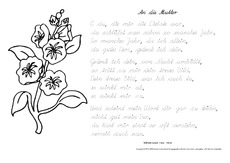 An die Mutter
O du, die mir die Liebste war,
du schläfst nun schon so manches Jahr.
So manches Jahr, da ich allein,
du gutes Herz, gedenk ich dein.
Gedenk ich dein, von Nacht umhüllt,
so tritt zu mir dein treues Bild.
Dein treues Bild, was ich auch tu,
es winkt mir ab, es winkt mir zu.
Und scheint mein Wort dir gar zu
nicht gut mein Tun,
du hast mir einst so oft verziehn,
verzeih auch nun.